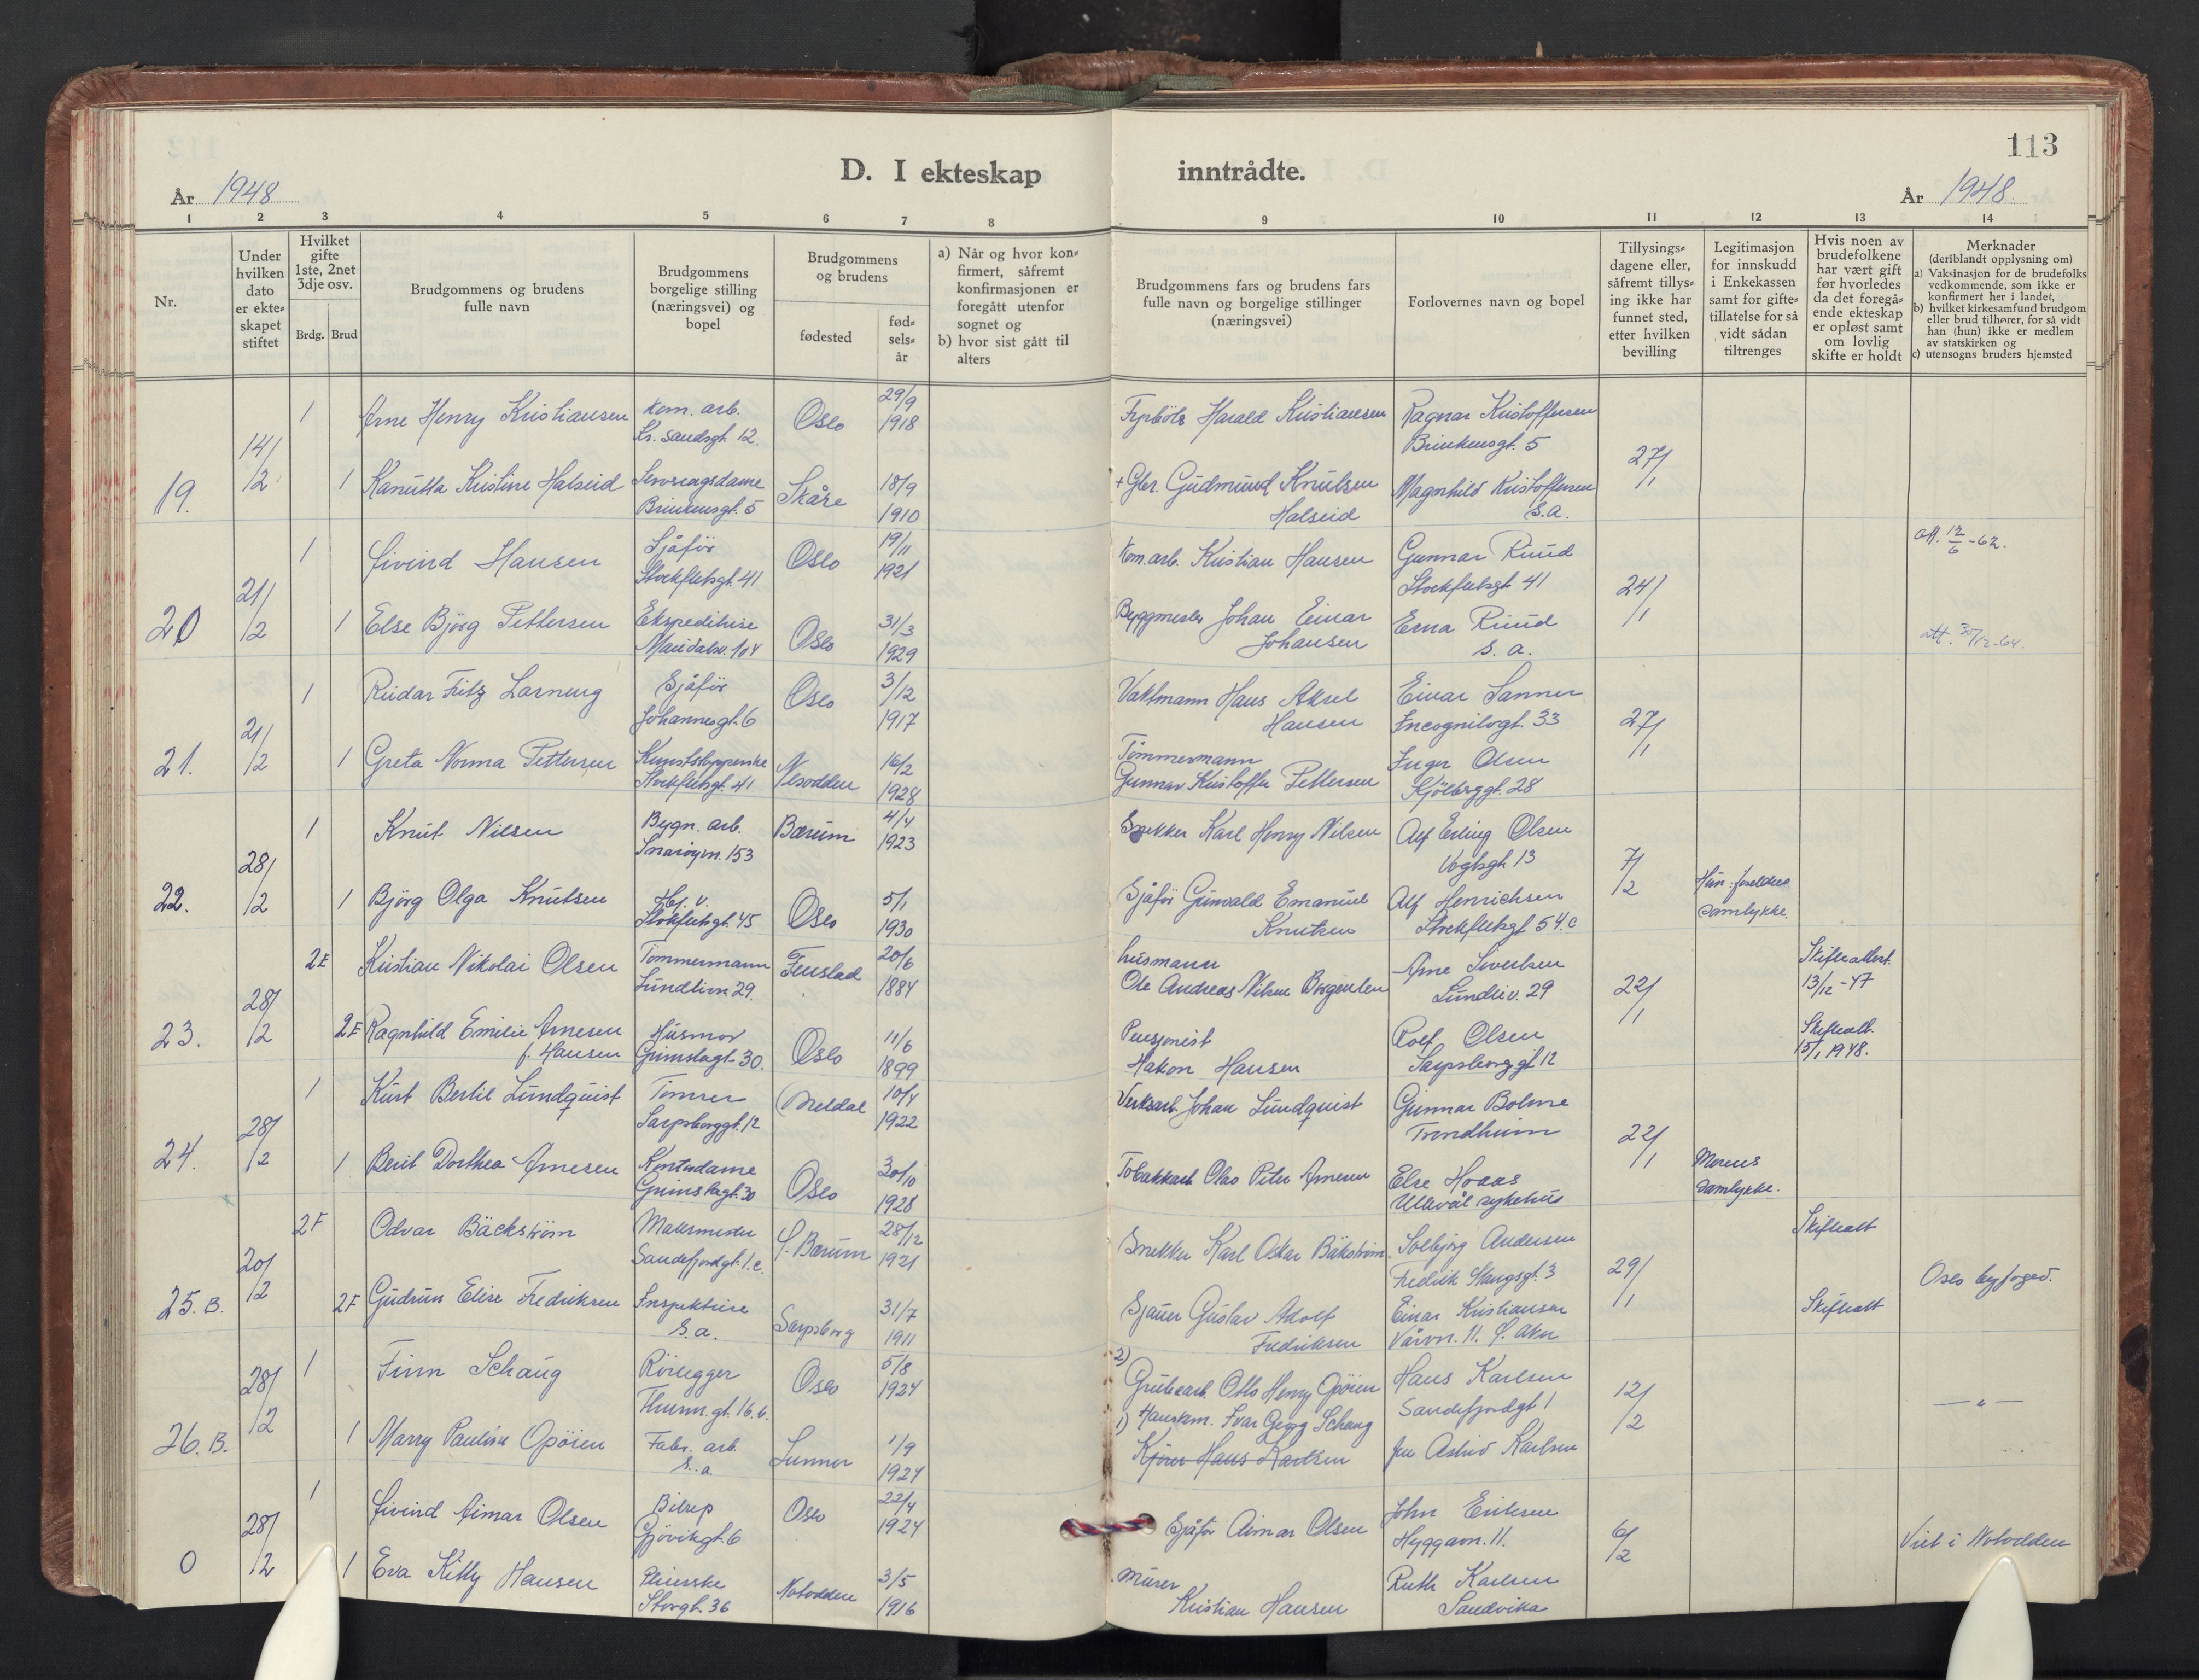 113
D. I ekteskap inntrådte.
År 1948
År 1948.
1 2 3 4 5 6 7 8 9 10 11 12 13 14
Nr.
Under hvilken dato er ekte- skapet stiftet
Hvilket gifte 1ste, 2net 3dje osv.
Brdg. Brud
Brudgommens og brudens fulle navn
Brudgommens borgelige stilling (næringsvei) og bopel
Brudgommens og brudens
fødested
fød- sels- år
a) Når og hvor kon- firmert, såfremt konfirmasjonen er foregått utenfor sognet og
b) hvor sist gått til alters
Brudgommens fars og brudens fars fulle navn og borgelige stillinger (næringsvei)
Forlovernes navn og bopel
Tillysings- dagene eller, såfremt tillys- ing ikke har funnet sted, etter hvilken bevilling
Legitimasjon for innskudd i Enkekassen samt for gifte- tillatelse for så vidt sådan tiltrenges
Hvis noen av brudefolkene har vært gift før hvorledes da det foregå- ende ekteskap er opløst samt om lovlig skifte er holdt
Merknader (deriblandt opplysning om)
a) Vaksinasjon for de brudefolks vedkommende, som ikke er konfirmert her i landet,
b) hvilket kirkesamfund brudgom eller brud tilhører, for så vidt han (hun) ikke er medlem av statskirken og
c) utensogns bruders hjemsted
19. 14/2
1 Arne Henry Kristiansen Kom. arb. Kr. sandsgt. 12. Oslo 29/9 1918 Fyrbøter Harald Kristiansen Ragnar Kristoffersen Brinkensgt. 5 27/1
1 Kanutta Kristine Halseid Serveringsdame Brinkensgt. 5 Skåre 18/9 1910 + Gbr. Gudmund Knutsen Halseid Magnhild Kristoffersen s.a.
20 21/2
1 Eivind Hansen Sjåfør Stockfletsgt. 41 Oslo 19/11 1921 Kom. arb. Kristian Hansen Gunnar Ruud Stockfletsgt 41 24/1 att. 12/6-62.
1 Else Bjørg Pettersen Ekspeditrise Maridalsv. 104 Oslo 31/3 1929 Byggmester Johan Einar Johansen Erna Ruud s. a. att. 30/12-64.
21. 21/2
1 Reidar Fritz Larnung Sjåfør Johannesgt. 6 Oslo 3/12 1917 Vaktmann Hans Aksel Hansen Einar Sanner Incognitogt. 33 27/1
1 Greta Norma Pettersen Kunststopperske Stockfletsgt. 41 Nesodden 16/2 1928 Tømmermann Gunnar Kristoffer Pettersen Inger Olsen Kjølberggt. 28
22. 28/2
1 Knut Nilsen Bygn. arb. Snarøyvn. 153 Bærum 4/4 1923 Snekker Karl Henry Nilsen Alf Erling Olsen Vogtsgt. 13 7/2
1 Bjørg Olga Knutsen Hj. v. Stokfletsgt. 45 Oslo 5/1 1930 Sjåfør Gunvald Emanuel Knutsen Alf Henrichsen Stockfletsgt 54.c Hun: foreldres samtykke.
23. 28/2
2E Kristian Nikolai Olsen Tømmermann Lundlivn. 29. Fenstad 20/6 1884 husmann Ole Andreas Nilsen Arne Sivertsen Lundliv. 29 22/1 Skifteattest. 13/12-47
2E Ragnhild Emilie Arnesen f. Hansen Husmor Grimstagt. 30. Oslo 11/6 1899 Pensjonist Hakon Hansen Rolf Olsen Sarpsborggt 12 Skifteatt. 15/1 1948.
24. 28/2
1 Kurt Bertil Lundquist Tømrer Sarpsborggt. 12 Meldal 10/4 1922 Verksarb. Johan Lundquist Gunnar Bolme Trondheim 22/1
1 Berit Dorthea Arnesen Kontordame Grimstagt. 30 Oslo 30/10 1928 Tobakkarb. Olav Peter Arnesen Else Hoaas Ullevål sykehus Morens samtykke.
25. B. 20/2
2F Odvar Bäckstrøm Malermester Sandefjordgt. 1.c. Ø. Bærum 28/12 1921 Snekker Karl Oskar Bäkstrøm Solbjørg Andersen Fredrik Stangsgt. 3 29/1 Skifteatt Oslo byfoged.
2F Gudrun Elise Fredriksen Inspektrise s.a. Sarpsborg 31/7 1911 Sjauer Gustav Adolf Fredriksen Einar Kristiansen Vårvn. 11. Ø. Aker Skifteatt
26. B. 28/2
1 Finn Schaug Rørlegger Thurm. gt. 16.b. Oslo 5/8 1924 2) Grubearb. Otto Henry Opøien Hans Karlsen Sandefjordgt 1 12/2 — „ —
1 Marry Pauline Opøien Fabr. arb. s. a. Lunner 1/9 1924 1) Hauskm. Ivar Georg Schaug Kjører Hans Karlsen fru Astrid Karlsen
0 28/2
1 Eivind Aimar Olsen Bilrep Gjøvikgt. 6 Oslo 22/4 1924 Sjåfør Aimar Olsen John Eriksen Hyggavn. 11. 6/2 Viet i Notodden
1 Eva Kitty Hansen Storgt. 36 Notodden 3/5 1916 Murer Kristian Hansen Ruth Karlsen Sandvika